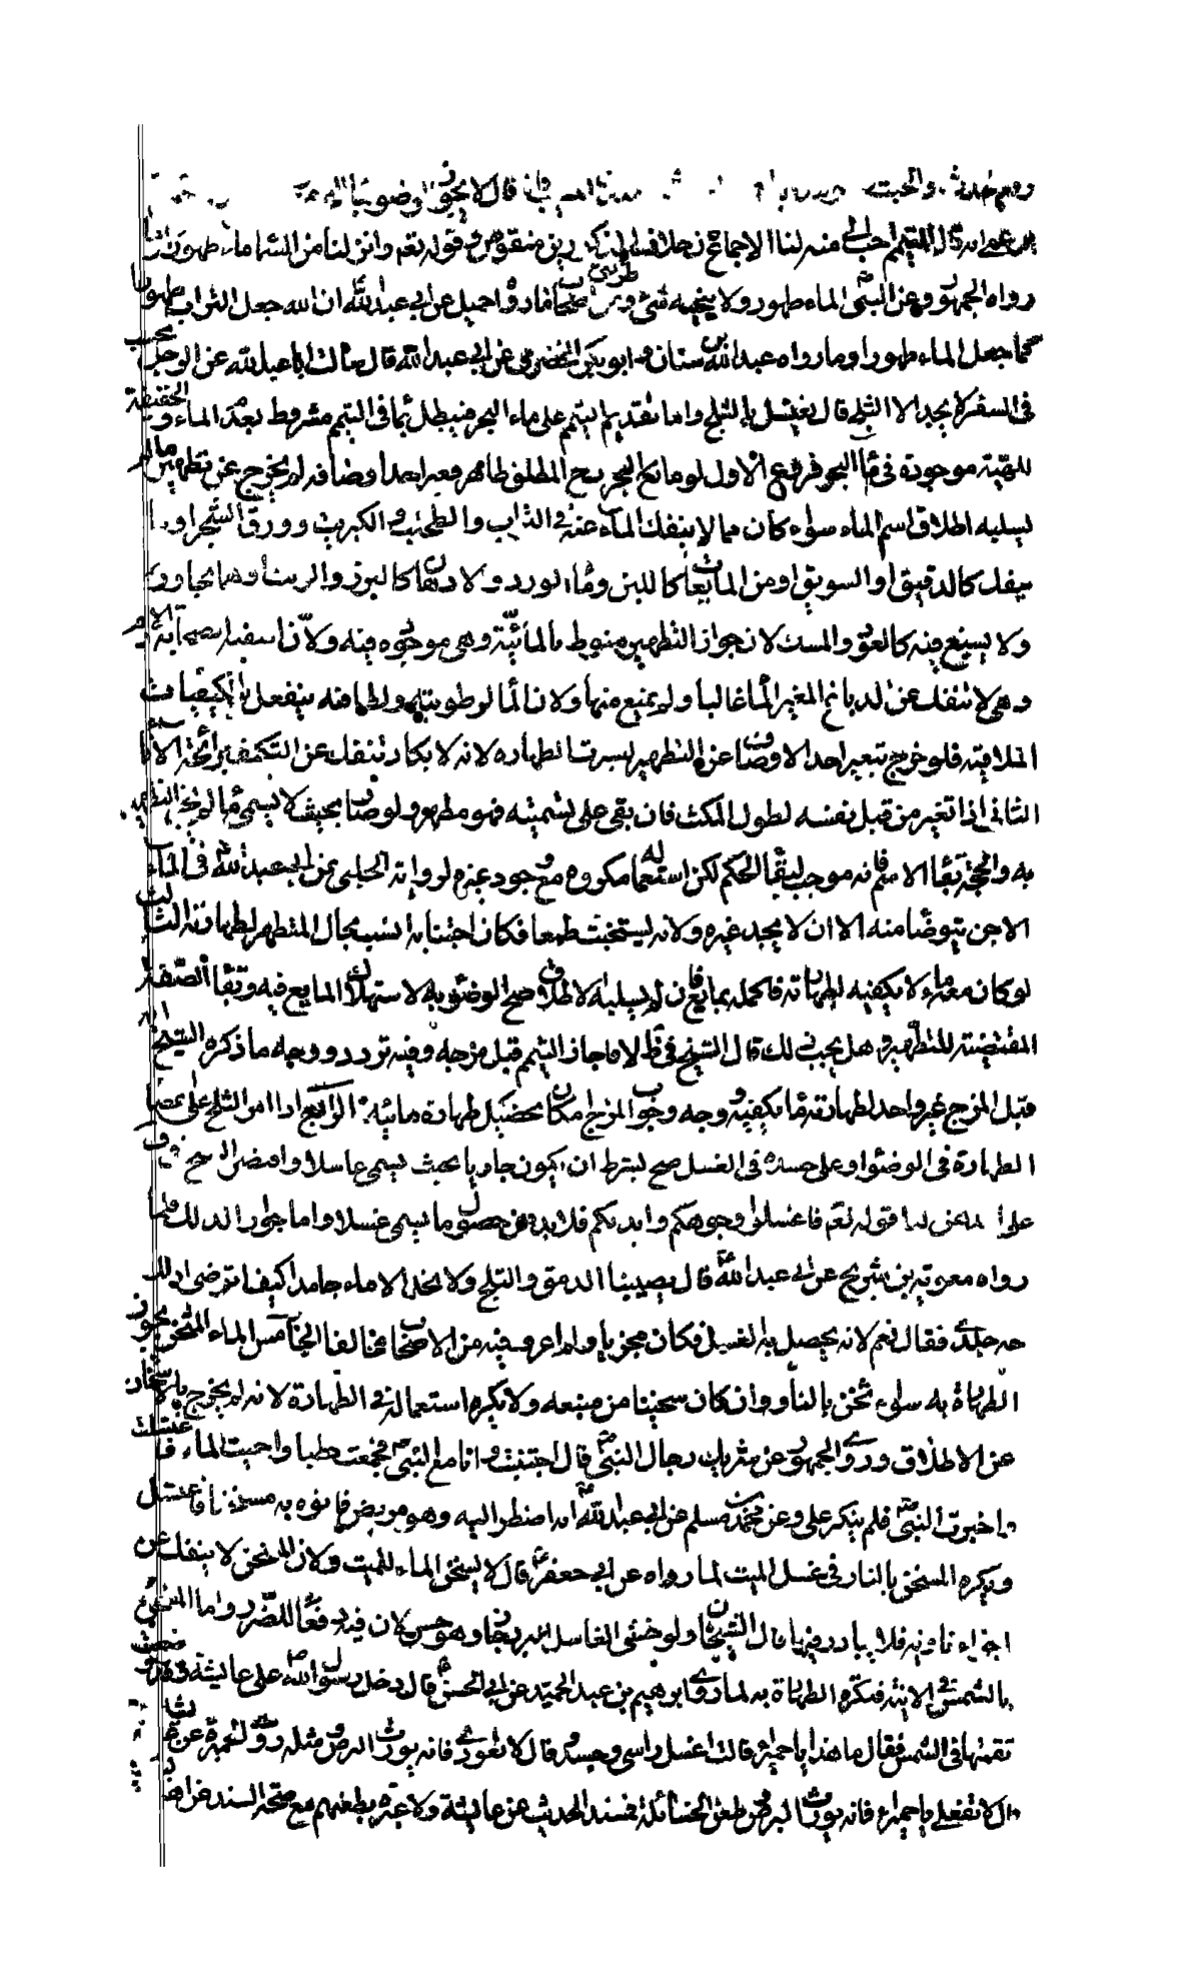 قال لا يجوز الوضوء بماء البحر
قال التيمم احب الي منه لنا الاجماع فان خلاف المذكورين منقرض وقوله تعالى وانزلنا من السماء ماء طهورا
رواه الجمهور وعن النبي الماء طهور ولا ينجسه شئ ومن طريق اصحابنا ما رواه جميل عن ابي عبد الله ان الله جعل التراب طهورا
كما جعل الماء طهورا وما رواه عبد الله بن سنان وابو بكر الحضرمي عن ابي عبد الله قال سالت ابا عبد الله عن الرجل يجنب
في السفر لا يجد الا الثلج قال يغتسل بالثلج واما تقديم التيمم على ماء البحر فيبطل بما في التيمم مشروط بعدم الماء والحقيقة
المائية موجودة في ماء البحر فروع الاول لو مازج المطلق طاهر فغير احد اوصافه لم يخرج عن تطهيره ما لم
يسلبه اطلاق اسم الماء سواء كان مما لا ينفك الماء عنه كالتراب والطحلب والكبريت وورق الشجر او
ينفك كالدقيق والسويق او من المايعات كاللبن وماء الورد والادهان كالبزر والزيت او مما يجاوره
ولا يشيع فيه كالعود والمسك لان جواز التطهير منوط بالمائية وهي موجودة فيه ولان اسقية الصحابة الادم
وهي لا تنفك عن الدباغ المغير للماء غالبا ولم يمنع منها ولان الماء لرطوبته ولطافته ينفعل بالكيفيات
الملاقية فلو خرج بتغير احد الاوصاف عن التطهير لعسرت الطهارة لانه لا يكاد ينفك عن التكيف برائحة الاناء
الثاني اذا تغير من قبل نفسه لطول المكث فان بقي على تسميته فهو مطهر ولو صار بحيث لا يسمى ماء لم يجز التطهير
به والحجة بقاء الاسم فانه موجب لبقاء الحكم لكن استعماله مكروه مع وجود غيره لرواية الحلبي عن ابي عبد الله في الماء
الاجن يتوضأ منه الا ان لا يجد غيره ولانه يستخبث طبعا فكان اجتنابه انسب بحال المتطهر لطهارته الثالث
لو كان معه ماء لا يكفيه لطهارته فاكمله بمايع فان لم يسلبه الاطلاق صح الوضوء به لاستهلاك المايع فيه وبقاء الصفة
المقتضية للتطهير وهل يجب ذلك قال الشيخ في ط لا فاجاز التيمم قبل مزجه وفيه تردد ووجه ما ذكره الشيخ انه
قبل المزج غير واجد لطهارته ما يكفيه ووجه وجوب المزج امكان تحصيل طهارة مائية الرابع اذا امر الثلج على اعضاء
الطهارة في الوضوء او على جسده في الغسل صح بشرط ان يكون جاريا بحيث يسمى غاسلا واقتصر الشيخ في
لنا قوله تعالى فاغسلوا وجوهكم وايديكم فلابد من حصول ما يسمى غسلا واما جواز الدلك فلما
رواه معوية بن شريح عن ابي عبد الله قال يصيبنا الدمق والثلج ولا نجد الا ماء جامدا كيف اتوضى ادلك
به جلدي فقال نعم لانه يحصل به الغسل فكان مجزيا ولم اعرف فيه من الاصحاب مخالفا الخامس الماء المسخن يجوز
الطهارة به سواء سخن بالنار وان كان سخينا من منبعه ولا يكره استعماله في الطهارة لانه لم يخرج بالاسخان
عن الاطلاق وروى الجمهور عن شريك رجال النبي قال اجتنبت وانا مع النبي فجمعت حطبا واحميت الماء فاغتسلت
فاخبرت النبي فلم ينكر علي وعن محمد بن مسلم عن ابي عبد الله انه اضطر اليه وهو مريض فاتوه به مسخنا فاغتسل
ويكره المسخن بالنار في غسل الميت لما رواه عن ابي جعفر قال لا يسخن الماء للميت ولان المسخن لا ينفك عن
اجزاء نارية فلا يبادر فيها قال الشيخان ولو خشى الغاسل البرد جاز وهو حسن لان فيه دفعا للضرر واما المسخن
بالشمس في الانية فتكره الطهارة به لما روى ابرهيم بن عبد الحميد عن ابي الحسن قال دخل رسول الله على عايشة وقد وضعت
قمقمتها في الشمس فقال ما هذا يا حميراء قالت اغسل راسي وجسدي قال لا تعودي فانه يورث البرص ومثله روى الجمهور عن
قال لا تفعلي يا حميراء فانه يورث البرص وطعن الحنابلة في سند الحديث عن عايشة ولا عبرة بطعنهم مع صحة السند عن اهل